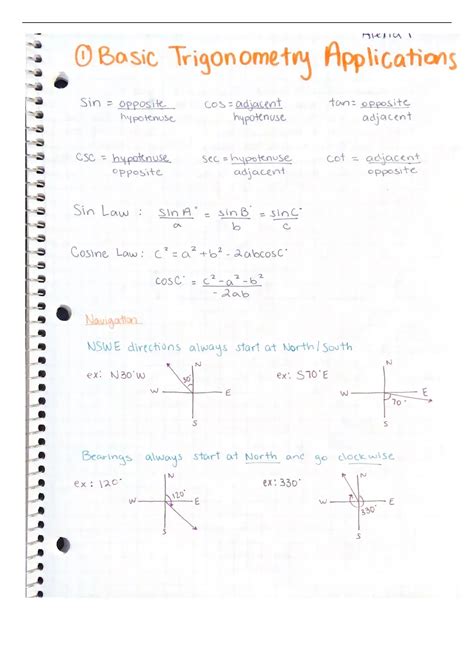 ① Basic Trigonometry Applications
Sin = opposite/hypotenuse cos = adjacent/hypotenuse tan = opposite/adjacent
csc = hypotenuse/opposite sec = hypotenuse/adjacent cot = adjacent/opposite
Sin Law : sinA°/a = sinB°/b = sinC°/c
Cosine Law : c² = a² + b² - 2abcosC°
cosC° = c² - a² - b²/-2ab
Navigation
NSWE directions always start at North/South
ex: N30°W ex: S70°E
N N
30°
W E W E
70°
S S
Bearings always start at North and go clockwise
ex: 120° ex: 330°
N N
120°
W E W E
330°
S S